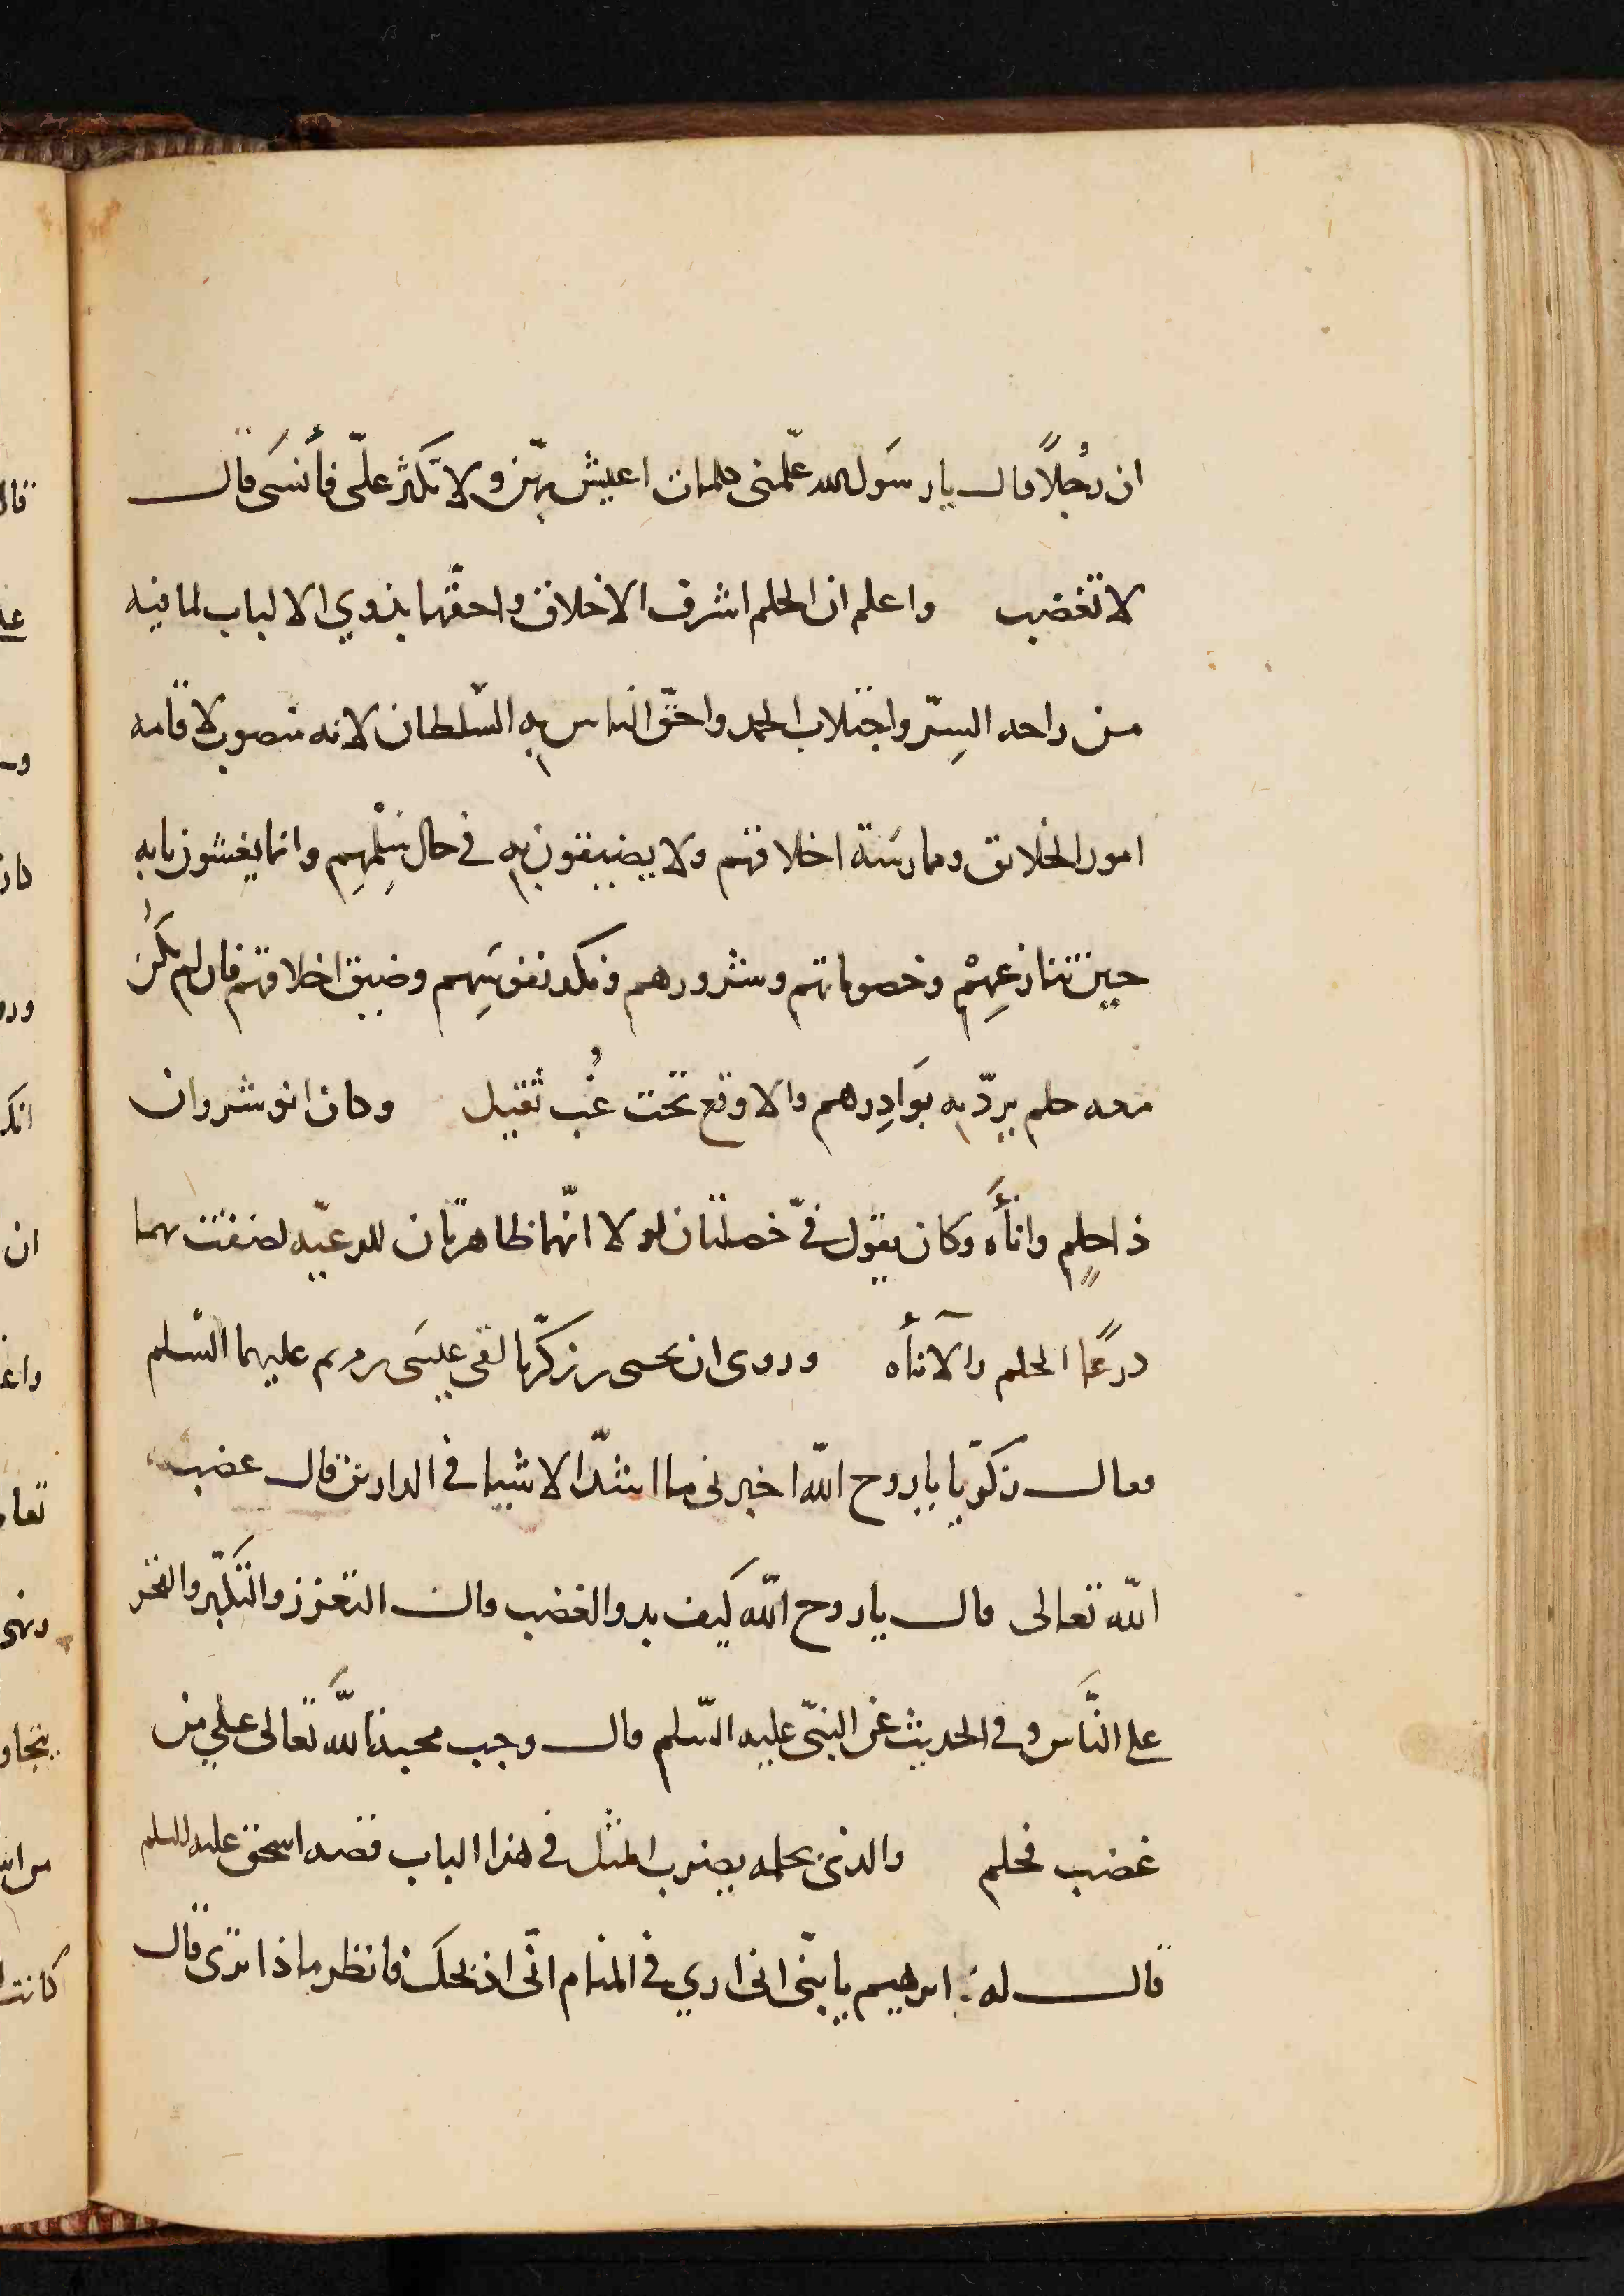 ان رجُلًا قال يا رسَول الله علّمنى كلمات اعيش بهّن ولا تكَثر علىّ فأنسَى قال
لا تغضب واعلم ان الحلم اشرف الاخلاق واحقّها بذوي الالباب لما فيه
من راحه السِرّ واجتلاب الحمد واحقّ الناس بهِ السّلطان لانه منصوب لاقامه
امور الخلائق وممارسَة اخلاقهم ولا يضيقون بهِ في حال سِلْمِهِم وانما يغشون بابه
حين تنازعِهِمْ وخصوماتهم وشرورهم وتكدر نفوسِهم وضيق اخلاقهم فان لم تكَن
معه حلم يردّ بهِ بَوَادِرهم والا وقع تحت عُبٍ ثقيل وكان انوشروان
ذا حلمٍ وانأَه وكان يقول فيّ خصلتان لولا انّهما ظاهرتان للرعيّه لضقت بهما
درعًا الحلم والآناأه وروى ان يحيى بن زكرّيا لقى عيسَى بن مريم عليهما السّلم
فقال زكرّيا يا روح اللّه اخبرنى ما اشدّ الاشيا في الدارين قال غضب
اللّه تعالى قال يا روح اللّه كَيف بدو الغضب قال التعزز والتكّبر والفخر
على النَّاس وفي الحديث عن النبىّ عليه السّلم قال وجب محبة اللَّه تعالى علي من
غضب فحلم والذى بحلمه يضرب المثل في هذا الباب قصه اسحق عليه السلم
قال له ابرهيم يا بنّى انى اري في المنام انّى اذبحك فانظر ماذا ترى قال